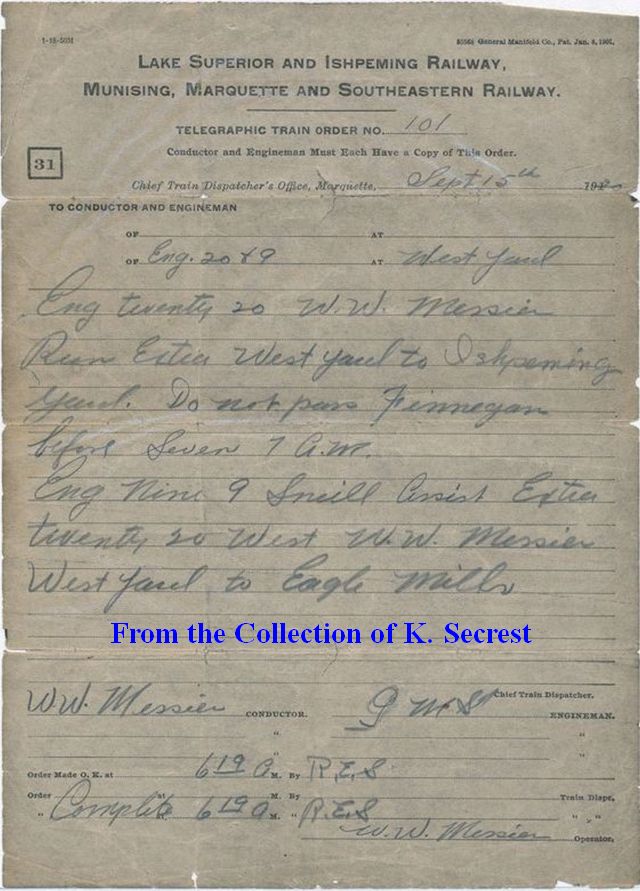 1-18-50M
General Manifold Co., Pat. Jan. 8, 1901.
LAKE SUPERIOR AND ISHPEMING RAILWAY,
MUNISING, MARQUETTE AND SOUTHEASTERN RAILWAY.
TELEGRAPHIC TRAIN ORDER NO. 101
31
Conductor and Engineman Must Each Have a Copy of This Order.
Chief Train Dispatcher's Office, Marquette, Sept 15th 191
TO CONDUCTOR AND ENGINEMAN
OF AT
OF Eng. 20 & 9 AT West Yard
Eng twenty 20 W.W. Messier
Run Extra West Yard to Ishpeming
Yard. Do not pass Finnegan
before Seven 7 A.M.
Eng Nine 9 Assist Extra
twenty 20 West W.W. Messier
West Yard to Eagle Mills
From the Collection of K. Secrest
Chief Train Dispatcher.
W.W. Messier CONDUCTOR. G M S ENGINEMAN.
" "
" "
Order Made O. K. at 6 19 A M. By R.E.S
Order at M. By Train Dispr.
" Complete 6 19 A M. " R.E.S " "
W.W. Messier Operator.